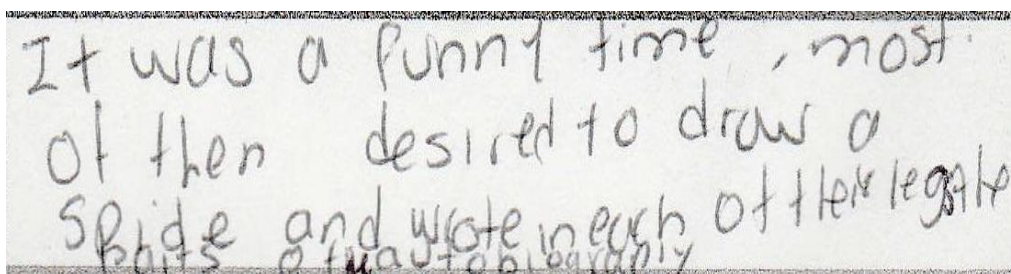 It was a funny time, most
of then desired to draw a
Spide and wrote in each of their legs the
parts of an autobiography